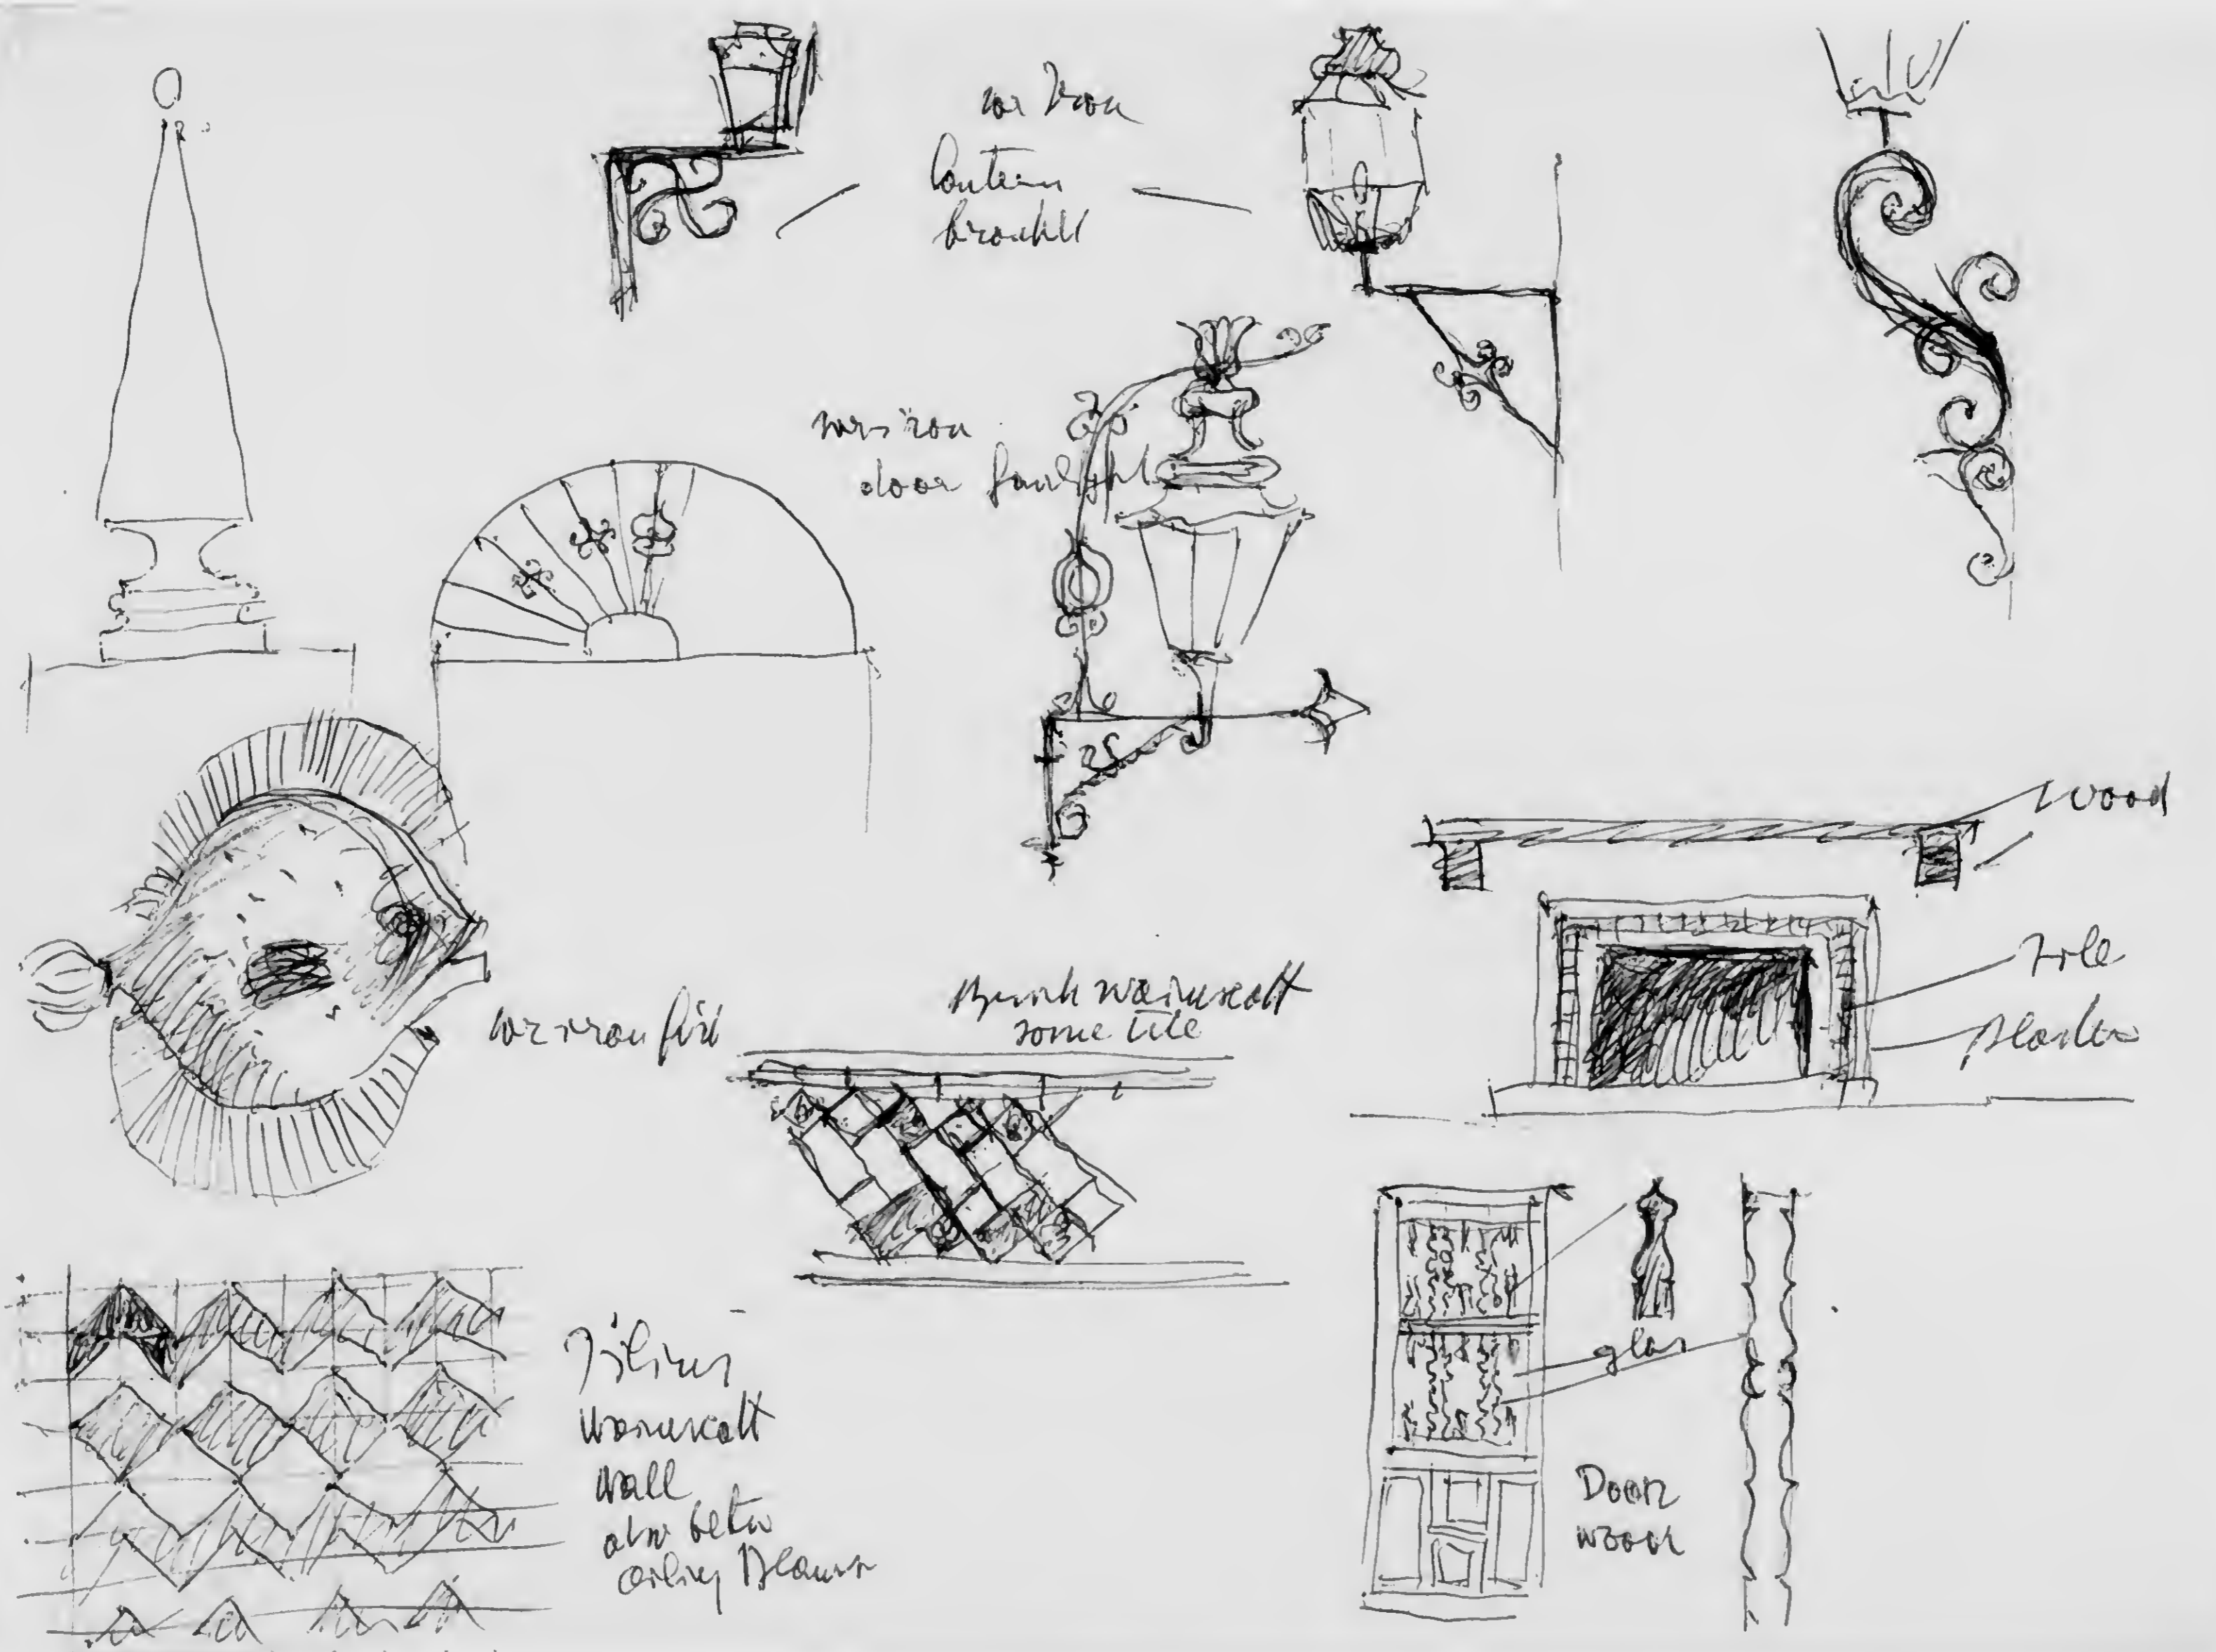 wr Iron
Lantern
bracket
wr iron
door fanlight
wood
Tile
wr iron fish
Brick wainscott
some tile
Tiling
Wainscott
wall
also betw
ceiling Beams
glas
Door
wood